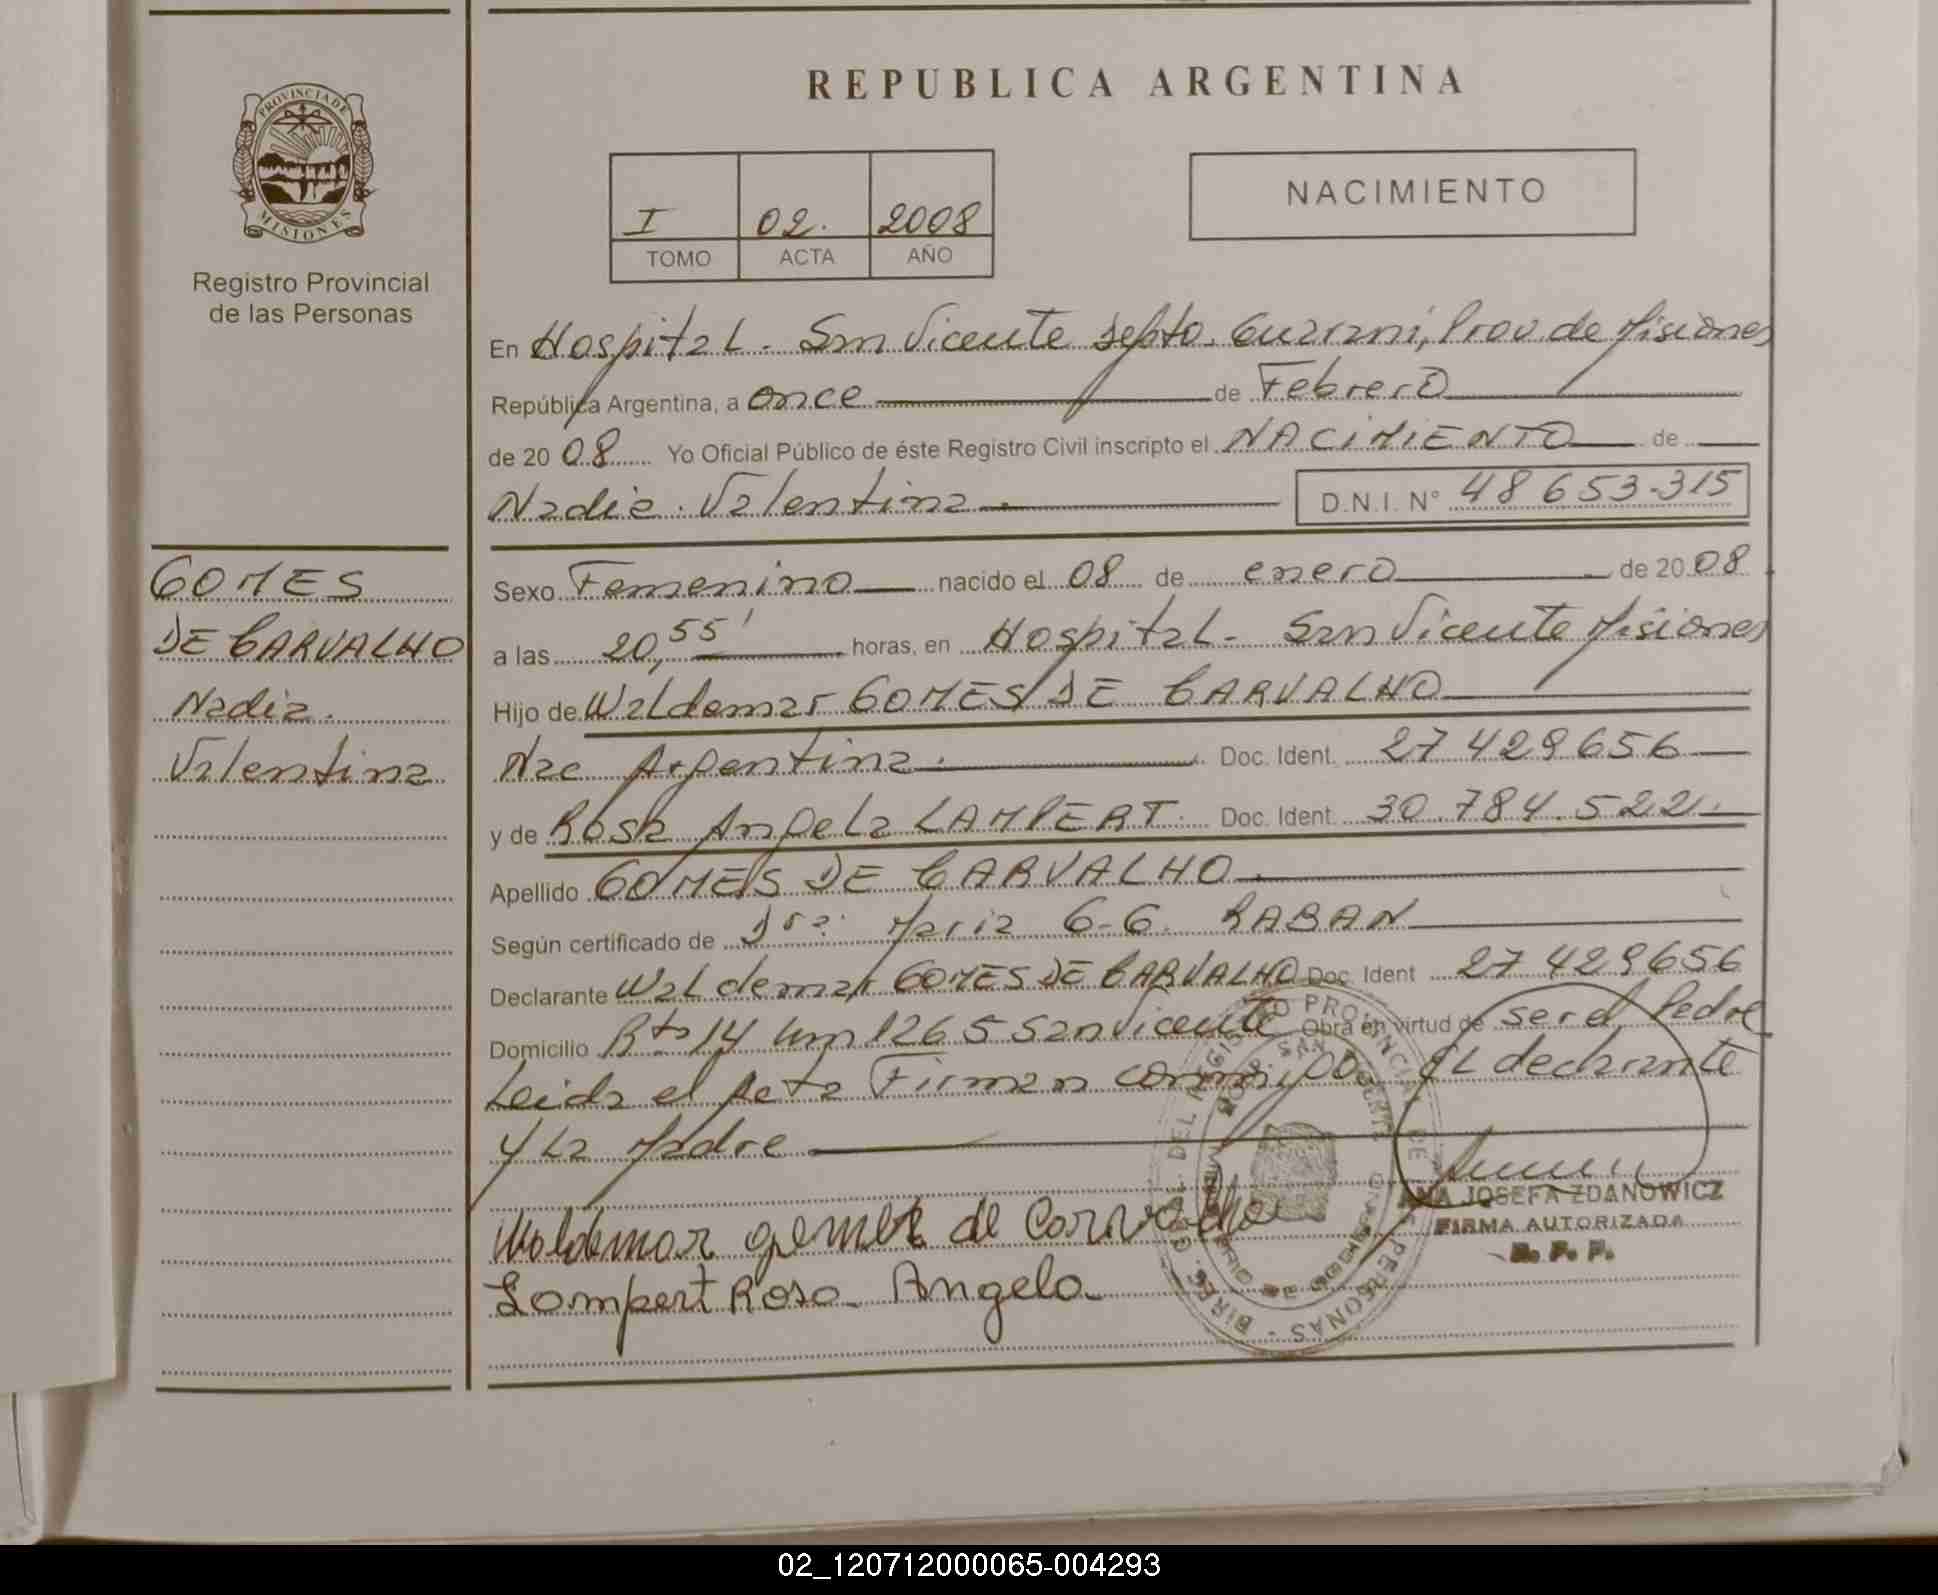 REPUBLICA ARGENTINA
PROVINCIA DE
MISIONES
Registro Provincial
de las Personas
I 02. 2008
TOMO ACTA AÑO
NACIMIENTO
En Hospital. San Vicente Depto. Guarani, Prov. de Misiones
República Argentina, a once de Febrero
de 20 08 Yo Oficial Público de éste Registro Civil inscripto el NACIMIENTO de
Nadia Valentina D.N.I. N° 48 653.315
GOMES
DE CARVALHO
Nadia.
Valentina
Sexo Femenino nacido el 08 de enero de 20 08
a las 20,55' horas, en Hospital - San Vicente Misiones
Hijo de Waldemar GOMES DE CARVALHO
Nac Argentina. Doc. Ident. 27 429656
y de Rosa Angela LAMPERT Doc. Ident. 30.784.522
Apellido GOMES DE CARVALHO
Según certificado de Dra. Maria G. G. RABAN
Declarante Waldemar GOMES DE CARVALHO Doc. Ident 27 429656
Domicilio Rta 14 km 1265 San Vicente Obra en virtud de ser el Padre
Leida el Acta Firman conmigo El declarante
y La Madre
Waldemar gomes de Carvalho
Lampert Rosa Angela
ANA JOSEFA ZDANOWICZ
FIRMA AUTORIZADA
R. P. P.
02_120712000065-004293